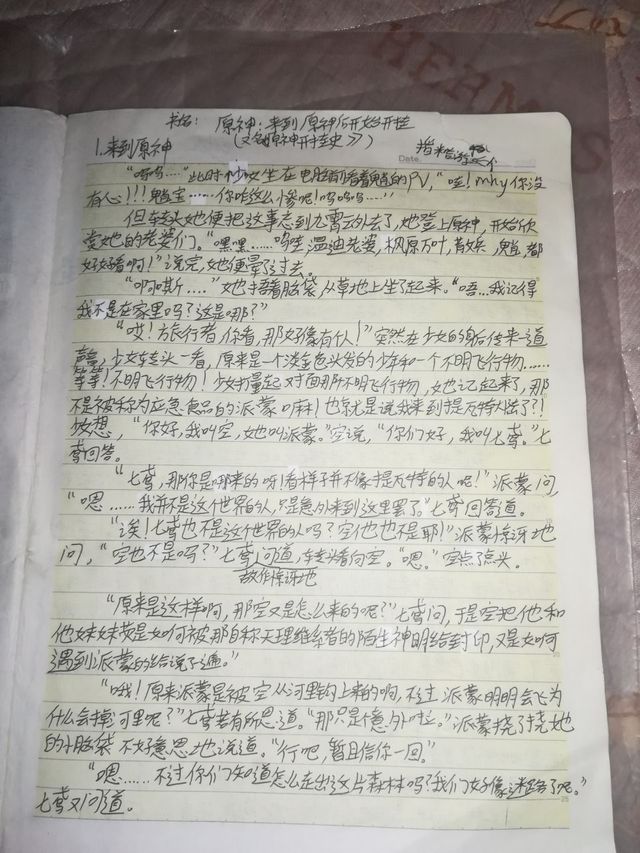 HERMES
书名：原神：来到原神后开始开挂
(又名《原神开挂史》)
Date
1.来到原神
“呜呜……”此时妙坎坐在电脑前看着魈的PV，“哇！mhy你没
有人心！！！魈宝……你咋这么惨呢！呜呜呜……”
但转头她便把这事忘到九霄云外去了，她登上原神，开始欣
赏她的老婆们。“嘿嘿……呜哇，温迪老婆，枫原万叶，散兵，魈，都
好好看啊！”说完，她便晕了过去。
“啊嘶……”她捂着脑袋，从草地上坐了起来。“唔…我记得
我不是在家里吗？这是哪？”
“哎！旅行者你看，那好像有人！”突然在少女的身后传来一道
声音，少女转头一看，原来是一个淡金色头发的少年和一个不明飞行物……
等等！不明飞行物！少女打量起对面那所不明飞行物，她记起来了，那
不是被称为应急食品的派蒙嘛！也就是说我来到提瓦特大陆了？！
想，“你好，我叫空，她叫派蒙。”空说，“你们好，我叫七鸢。”七
鸢回答。
“七鸢，那你是哪来的呀！看样子并不像提瓦特的人呢！”派蒙问，
“嗯……我并不是这个世界的人，只是意外来到这里罢了”七鸢回答道。
“诶！七鸢也不是这个世界的人吗？空他也不是耶！”派蒙惊讶地
问，“空也不是吗？”七鸢问道，转头看向空。“嗯。”空点了点头。
故作惊讶地
“原来是这样啊，那空又是怎么来的呢？”七鸢问，于是空把他和
他妹妹荧是如何被那自称天理维系者的陌生神明给封印，又是如何
遇到派蒙的给说了遍。”
“哦！原来派蒙是被空从河里钓上来的啊，不过派蒙明明会飞为
什么会掉河里呢？”七鸢若有所思道。“那只是意外啦。”派蒙挠了挠她
的小脑袋不好意思地说道。“行吧，暂且信你一回。”
“嗯……不过你们知道怎么走出这片森林吗？我们好像迷路了呢。”
七鸢又问道。